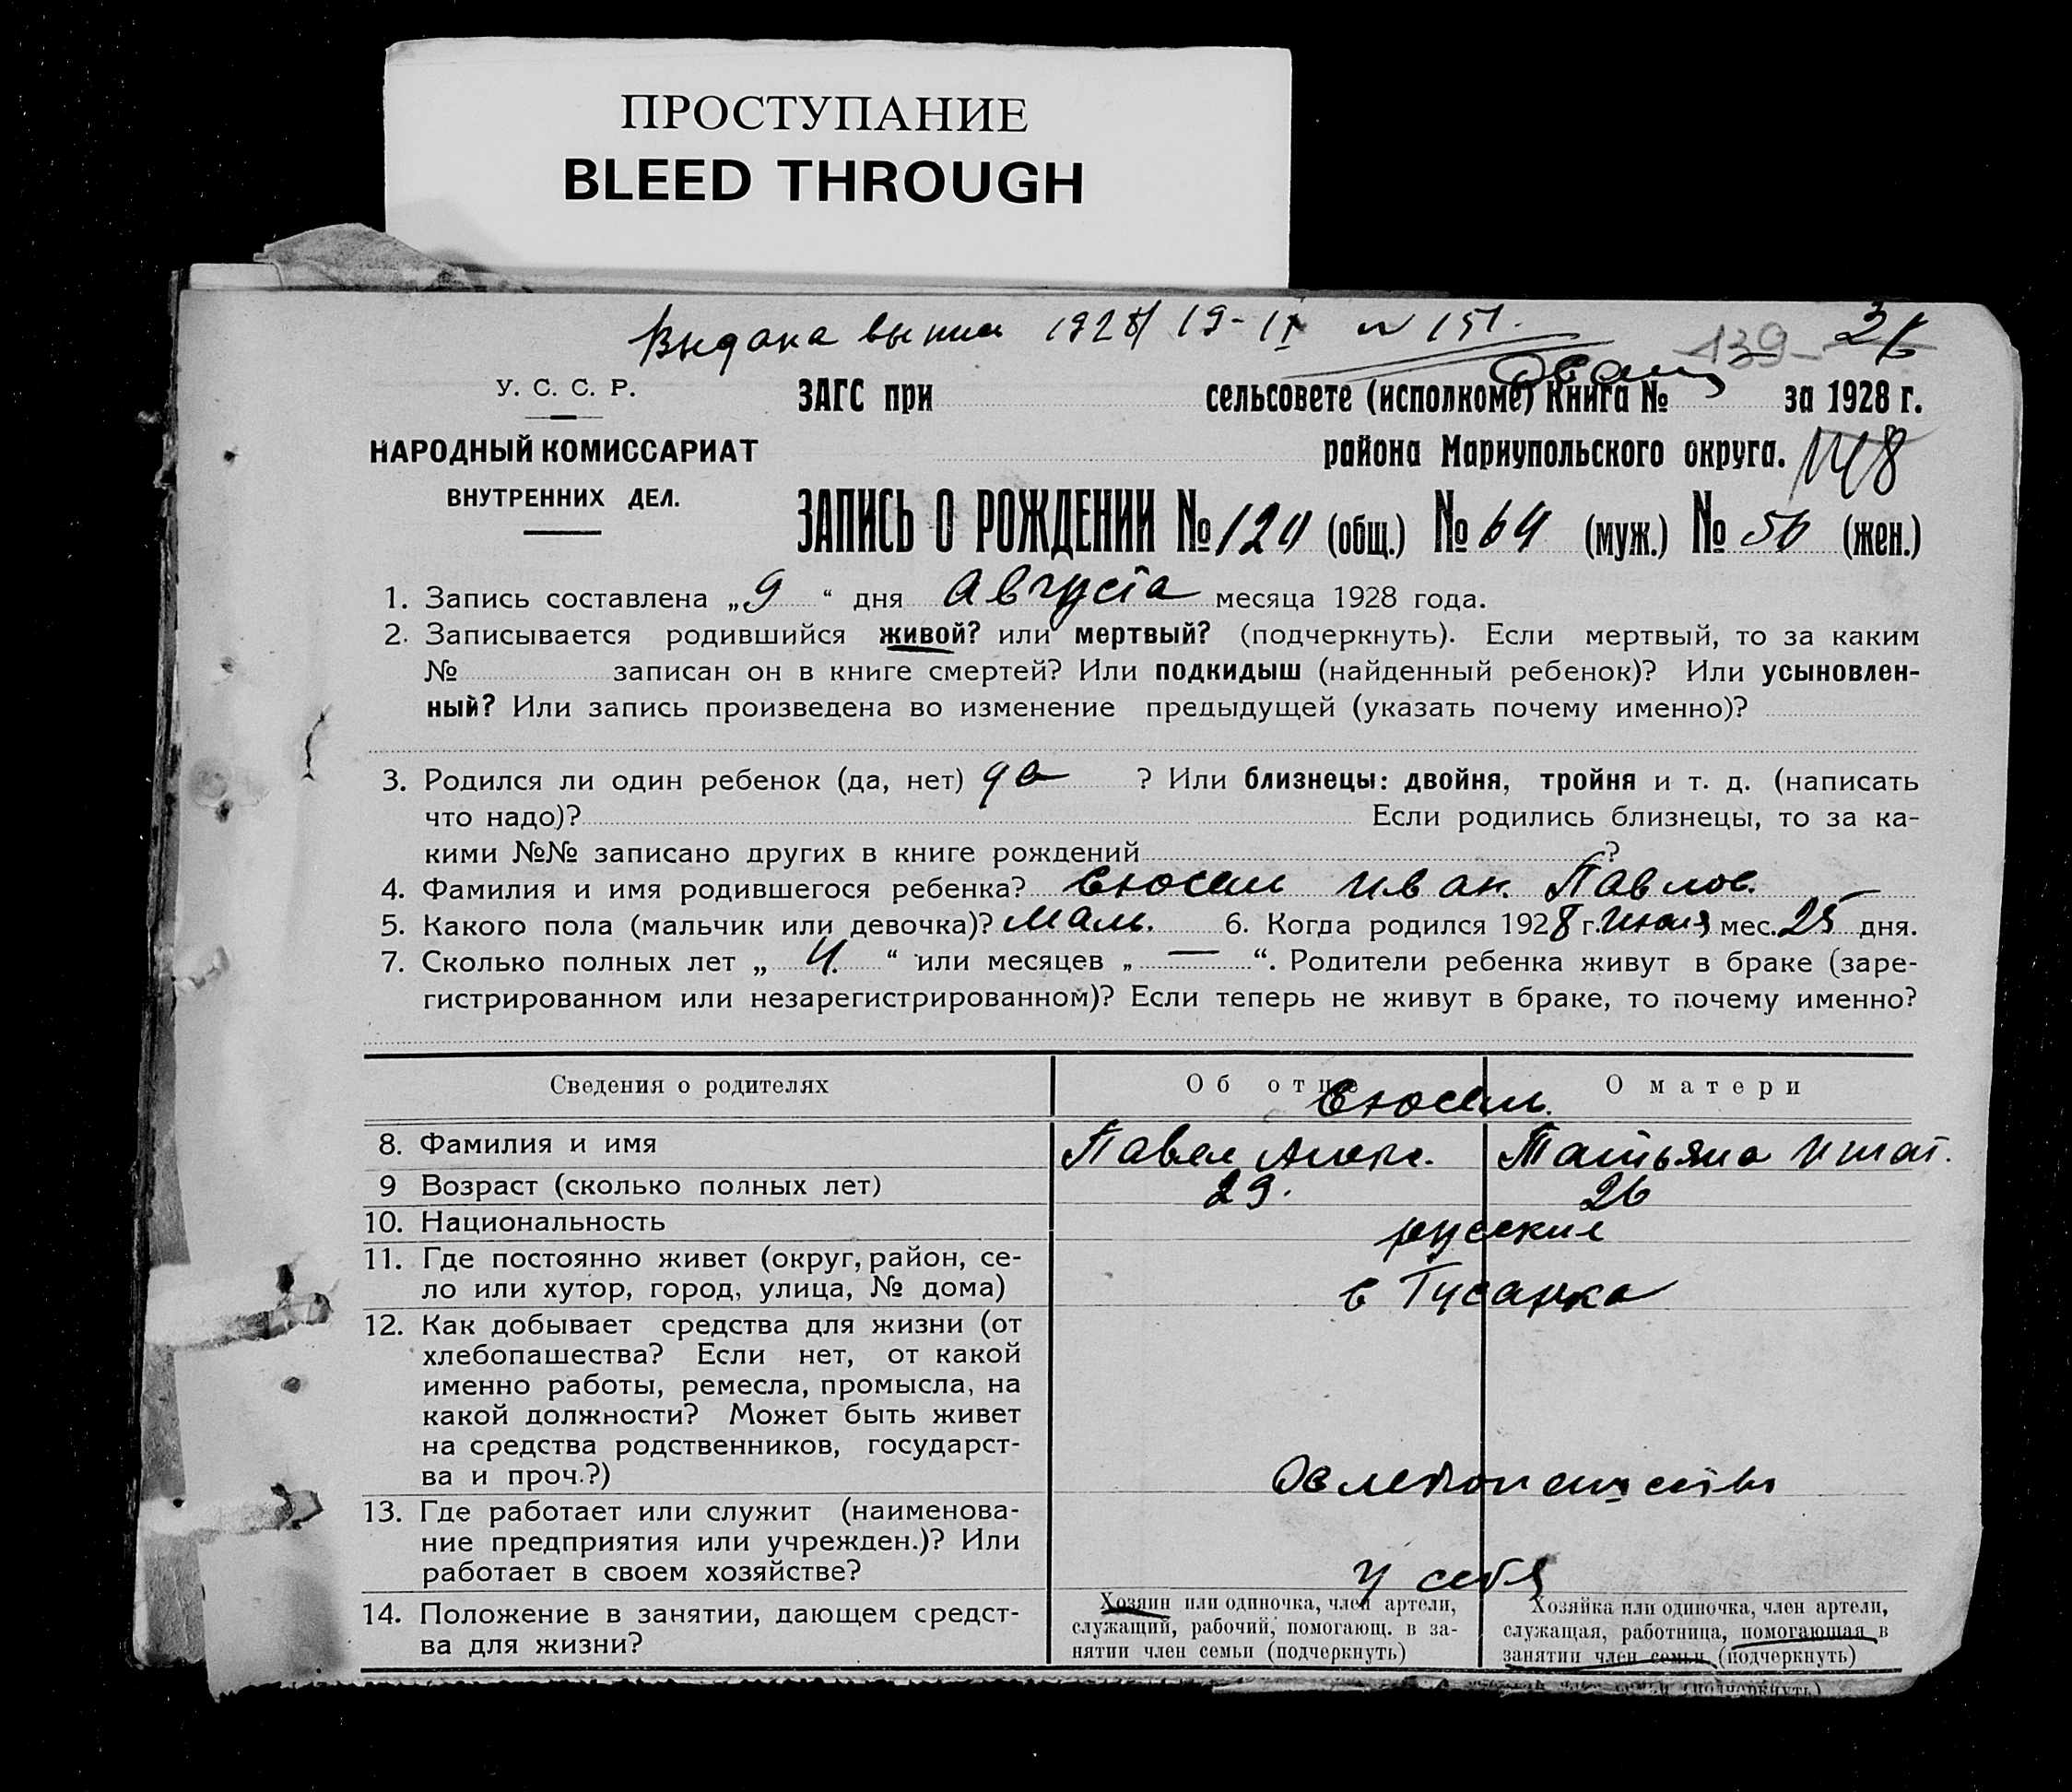 ПРОСТУПАНИЕ
BLEED THROUGH
1928 19-IX № 151.
139
У. С. С. Р.
ЗАГС при сельсовете (исполкоме) Книга № за 1928 г.
НАРОДНЫЙ КОМИССАРИАТ
района Мариупольского округа.
ВНУТРЕННИХ ДЕЛ.
ЗАПИСЬ О РОЖДЕНИИ № 124 (общ.) № 64 (муж.) № (жен.)
1. Запись составлена „9“ дня Августа месяца 1928 года.
2. Записывается родившийся живой? или мертвый? (подчеркнуть). Если мертвый, то за каким
№ записан он в книге смертей? Или подкидыш (найденный ребенок)? Или усыновлен-
ный? Или запись произведена во изменение предыдущей (указать почему именно)?
3. Родился ли один ребенок (да, нет) да ? Или близнецы: двойня, тройня и т. д. (написать
что надо)? Если родились близнецы, то за ка-
кими №№ записано других в книге рождений ?
4. Фамилия и имя родившегося ребенка? Иван Павлов.
5. Какого пола (мальчик или девочка)? Маль. 6. Когда родился 1928 г. мес. 25 дня.
7. Сколько полных лет „ 4. “ или месяцев „ — “. Родители ребенка живут в браке (заре-
гистрированном или незарегистрированном)? Если теперь не живут в браке, то почему именно?
Сведения о родителях Об отце О матери
8. Фамилия и имя Павел Татьяна
9 Возраст (сколько полных лет) 29. 26
10. Национальность русские
11. Где постоянно живет (округ, район, се-
ло или хутор, город, улица, № дома)
12. Как добывает средства для жизни (от
хлебопашества? Если нет, от какой
именно работы, ремесла, промысла, на
какой должности? Может быть живет
на средства родственников, государст-
ва и проч.?)
13. Где работает или служит (наименова-
ние предприятия или учрежден.)? Или
работает в своем хозяйстве? у себя
14. Положение в занятии, дающем средст-
ва для жизни?
Хозяин или одиночка, член артели,
служащий, рабочий, помогающ. в за-
нятии член семьи (подчеркнуть)
Хозяйка или одиночка, член артели,
служащая, работница, помогающая в
занятии член семьи (подчеркнуть)